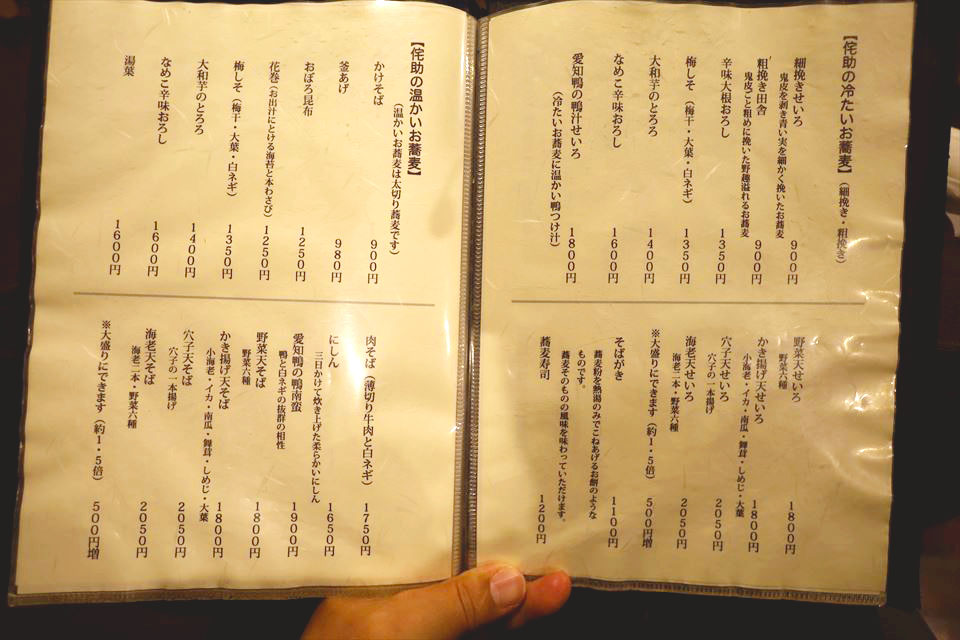 【侘助の冷たいお蕎麦】（細挽き・粗挽き）
細挽きせいろ 900円
鬼皮を剥き青い実を細かく挽いたお蕎麦
粗挽き田舎 900円
鬼皮ごと粗めに挽いた野趣溢れるお蕎麦
辛味大根おろし 1350円
梅しそ（梅干・大葉・白ネギ） 1350円
大和芋のとろろ 1400円
なめこ辛味おろし 1600円
愛知鴨の鴨汁せいろ 1800円
（冷たいお蕎麦に温かい鴨つけ汁）
野菜天せいろ 1800円
野菜六種
かき揚げ天せいろ 1800円
小海老・イカ・南瓜・舞茸・しめじ・大葉
穴子天せいろ 2050円
穴子の一本揚げ
海老天せいろ 2050円
海老二本・野菜六種
※大盛りにできます（約1・5倍） 500円増
そばがき 1100円
蕎麦粉を熱湯のみでこねあげるお餅のような
ものです。
蕎麦そのものの風味を味わっていただけます。
蕎麦寿司 1200円
【侘助の温かいお蕎麦】
（温かいお蕎麦は太切り蕎麦です）
かけそば 900円
釜あげ 980円
おぼろ昆布 1250円
花巻（お出汁にとける海苔と本わさび） 1250円
梅しそ（梅干・大葉・白ネギ） 1350円
大和芋のとろろ 1400円
なめこ辛味おろし 1600円
湯葉 1600円
肉そば（薄切り牛肉と白ネギ） 1750円
にしん 1650円
三日かけて炊き上げた柔らかいにしん
愛知鴨の鴨南蛮 1900円
鴨と白ネギの抜群の相性
野菜天そば 1800円
野菜六種
かき揚げ天そば 1800円
小海老・イカ・南瓜・舞茸・しめじ・大葉
穴子天そば 2050円
穴子の一本揚げ
海老天そば 2050円
海老二本・野菜六種
※大盛りにできます（約1・5倍） 500円増